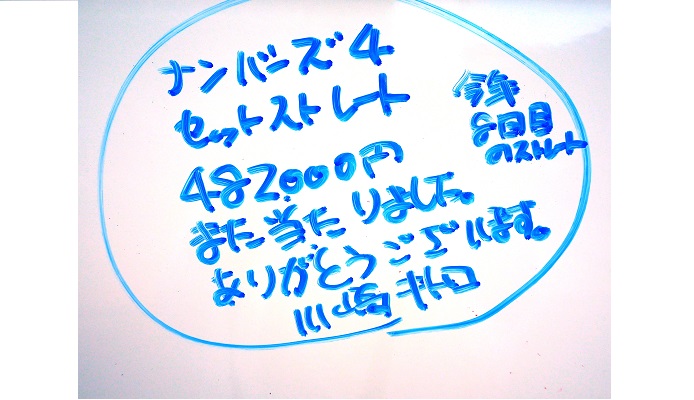 ナンバーズ4
セットストレート
482000円
また当たりました。
ありがとうございます。
川崎 キトロ
今年
8回目
のストレート